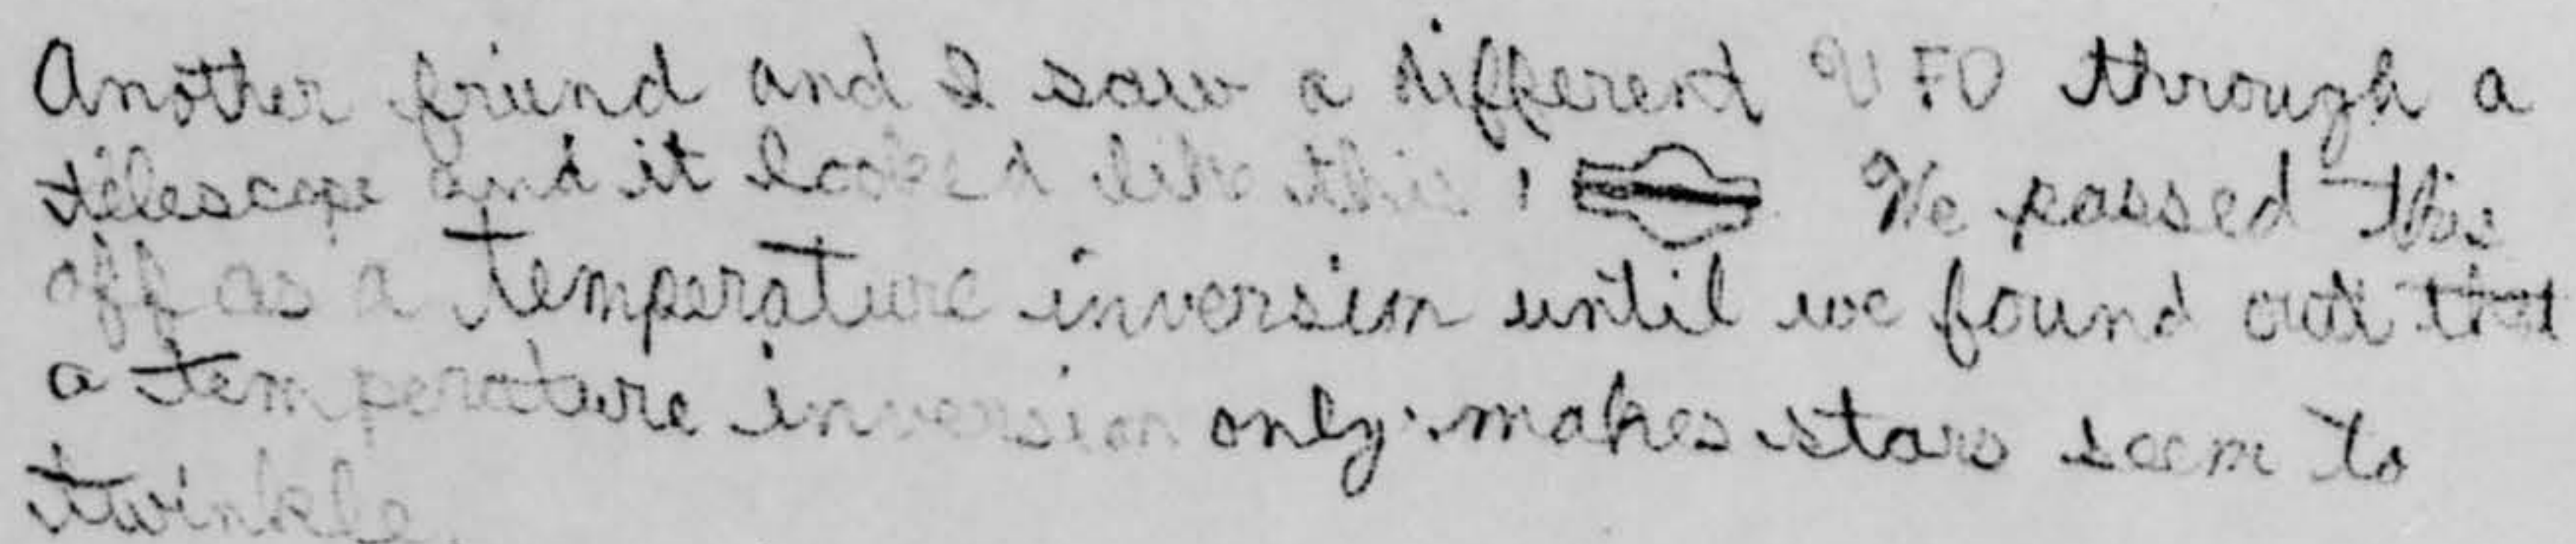 Another friend and I saw a different UFO through a
telescope and it looked like this: We passed this
off as a temperature inversion until we found out that
a temperature inversion only makes stars seem to
twinkle.